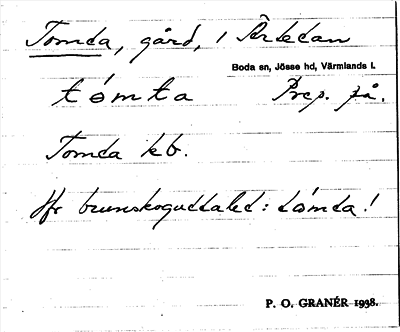 Tomda, gård, i Ärledan
Boda sn, Jösse hd, Värmlands l.
tómta Prep. på.
Tomda kb.
Jfr brunskogsuttalet: tómta!
P. O. GRANÉR 1938.